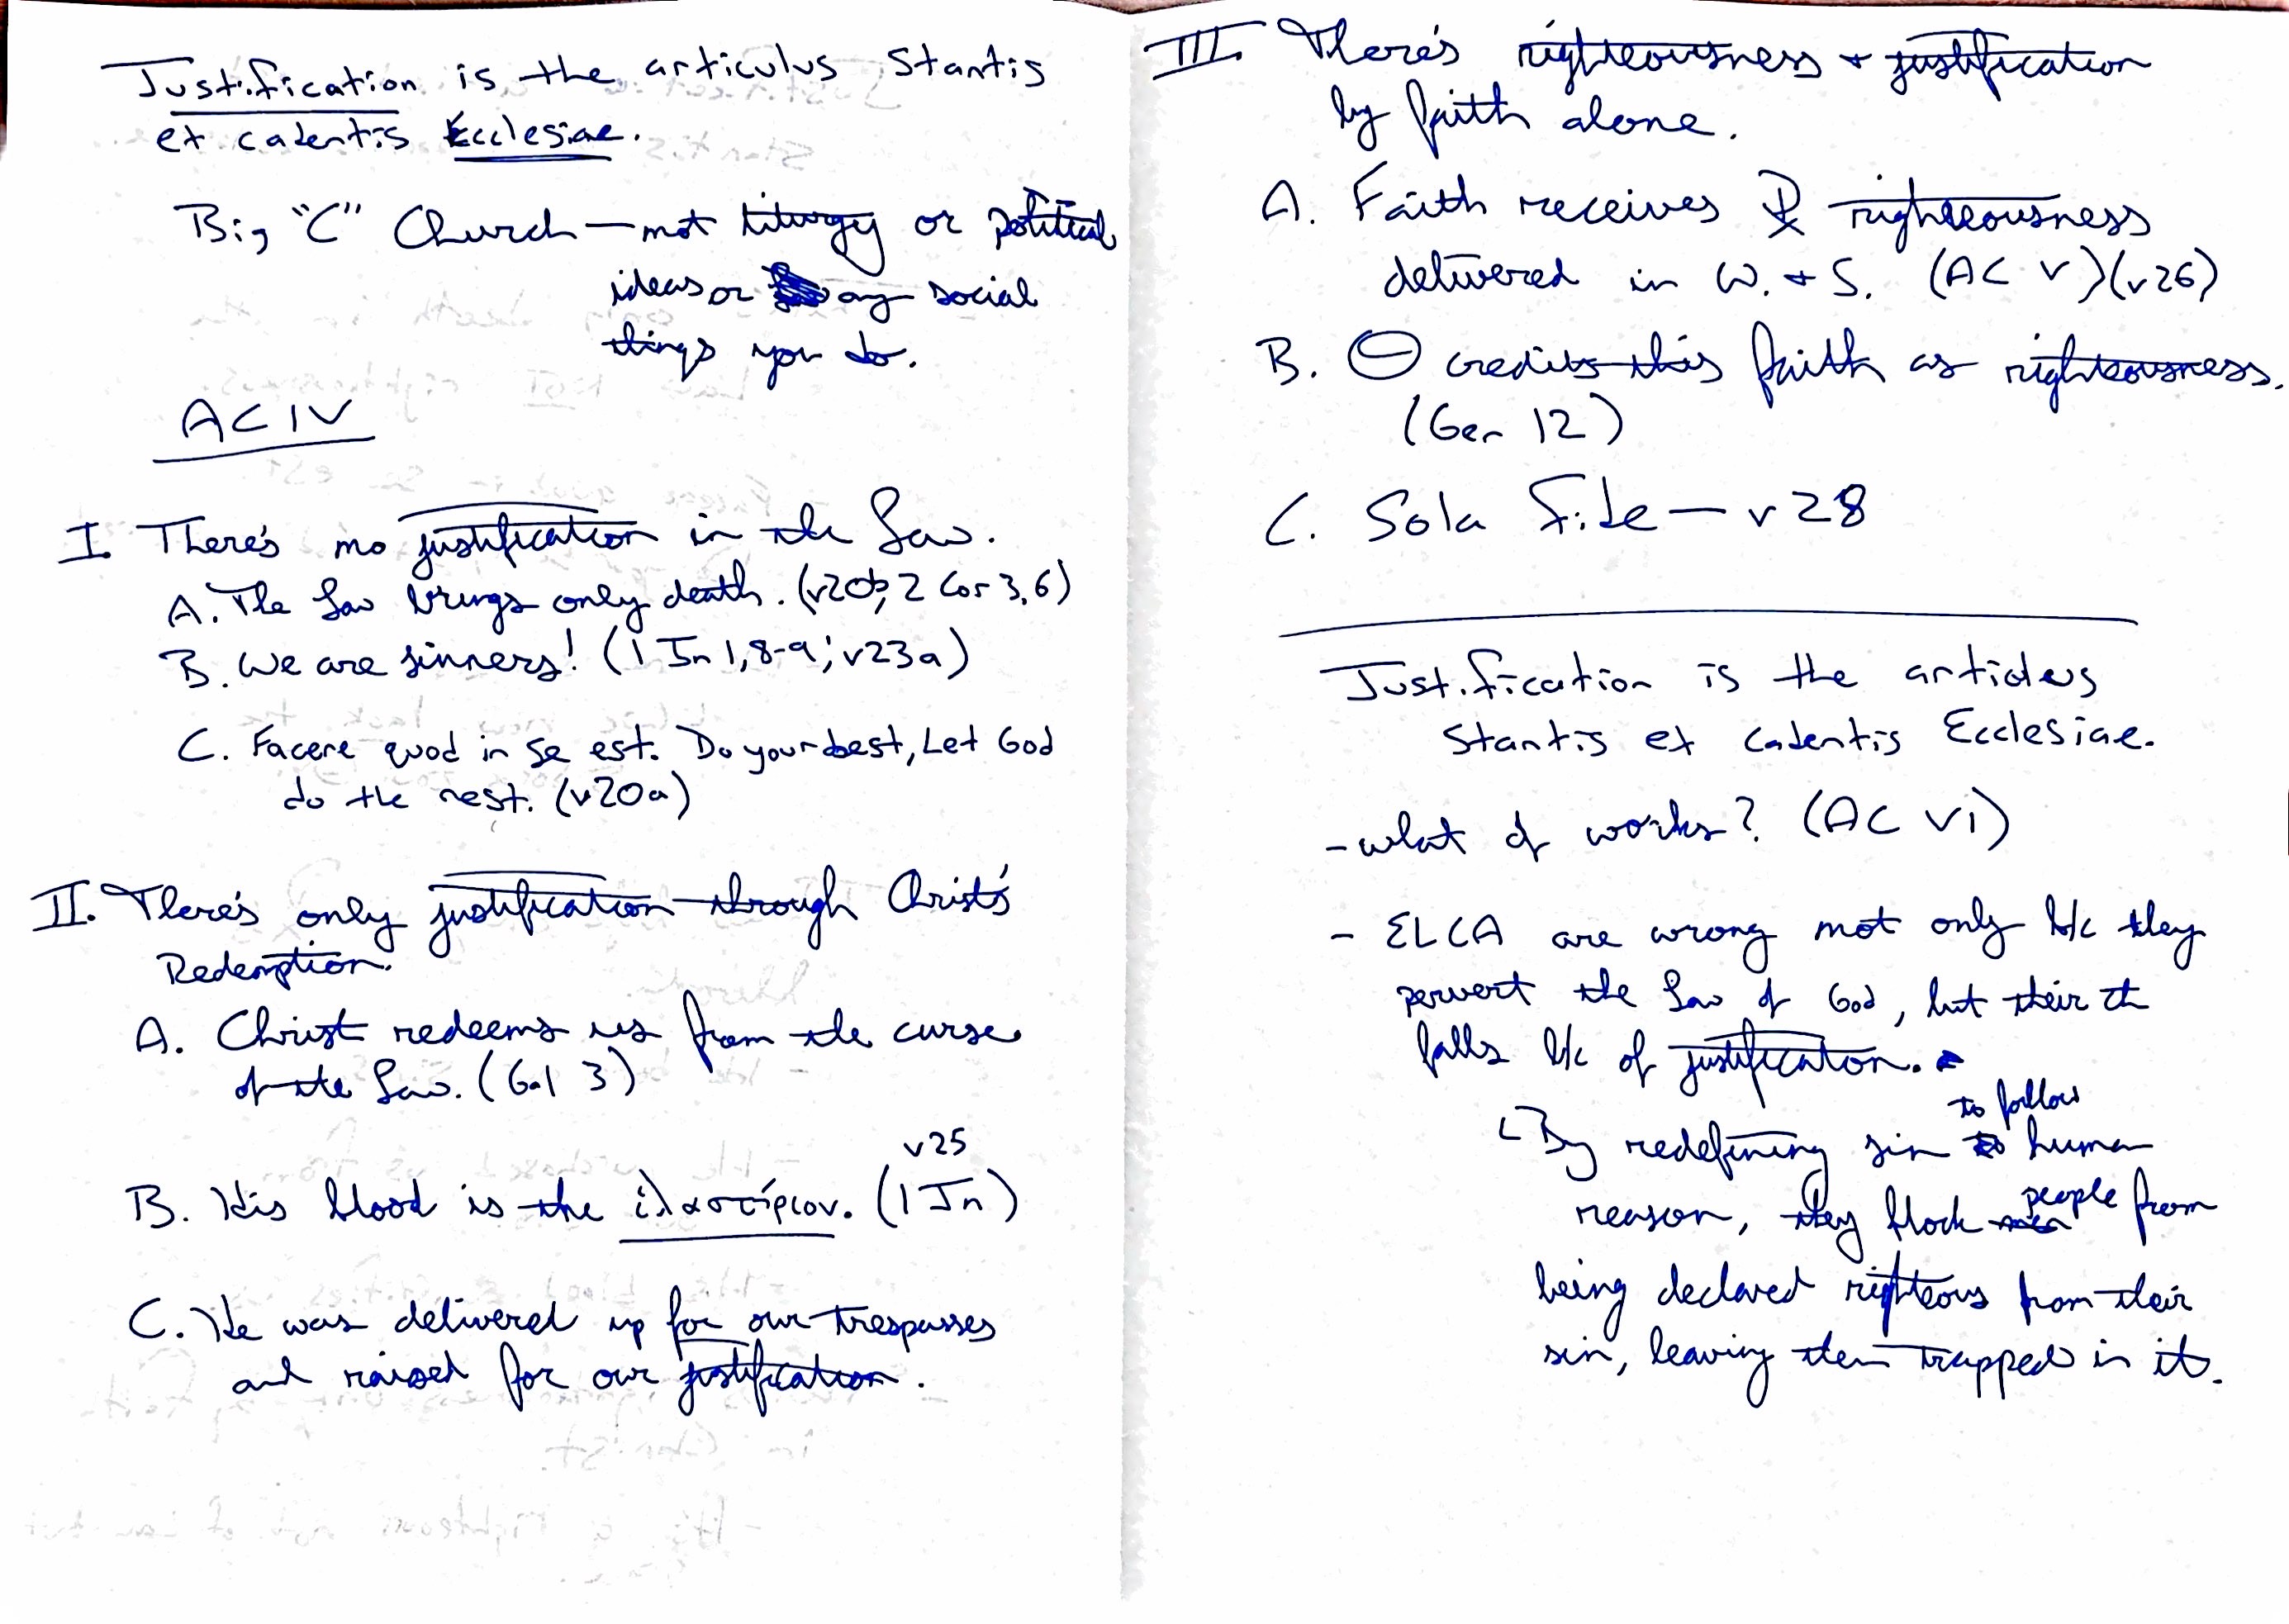 Justification is the articulus stantis
et cadentis Ecclesiae.
Big "C" Church — not liturgy or political
ideas or any social
things you do.
AC IV
I. There's no justification in the Law.
A. The Law brings only death. (v20b, 2 Cor 3,6)
B. We are sinners! (1 Jn 1,8-9; v23a)
C. Facere quod in se est. Do your best, Let God
do the rest. (v20a)
II. There's only justification through Christ's
Redemption.
A. Christ redeems us from the curse
of the Law. (Gal 3)
v25
B. His blood is the ἱλαστίριον. (1 Jn)
C. He was delivered up for our trespasses
and raised for our justification.
III. There's righteousness + justification
by faith alone.
A. Faith receives righteousness
delivered in W. + S. (AC V) (v26)
B. Θ credits this faith as righteousness.
(Gen 12)
C. Sola Fide — v28
Justification is the articulus
stantis et cadentis Ecclesiae.
- what of works? (AC VI)
- ELCA are wrong not only b/c they
pervert the Law of God, but their th
falls b/c of justification.
to follow
By redefining sin human
reason, they block people from
being declared righteous from their
sin, leaving them trapped in it.